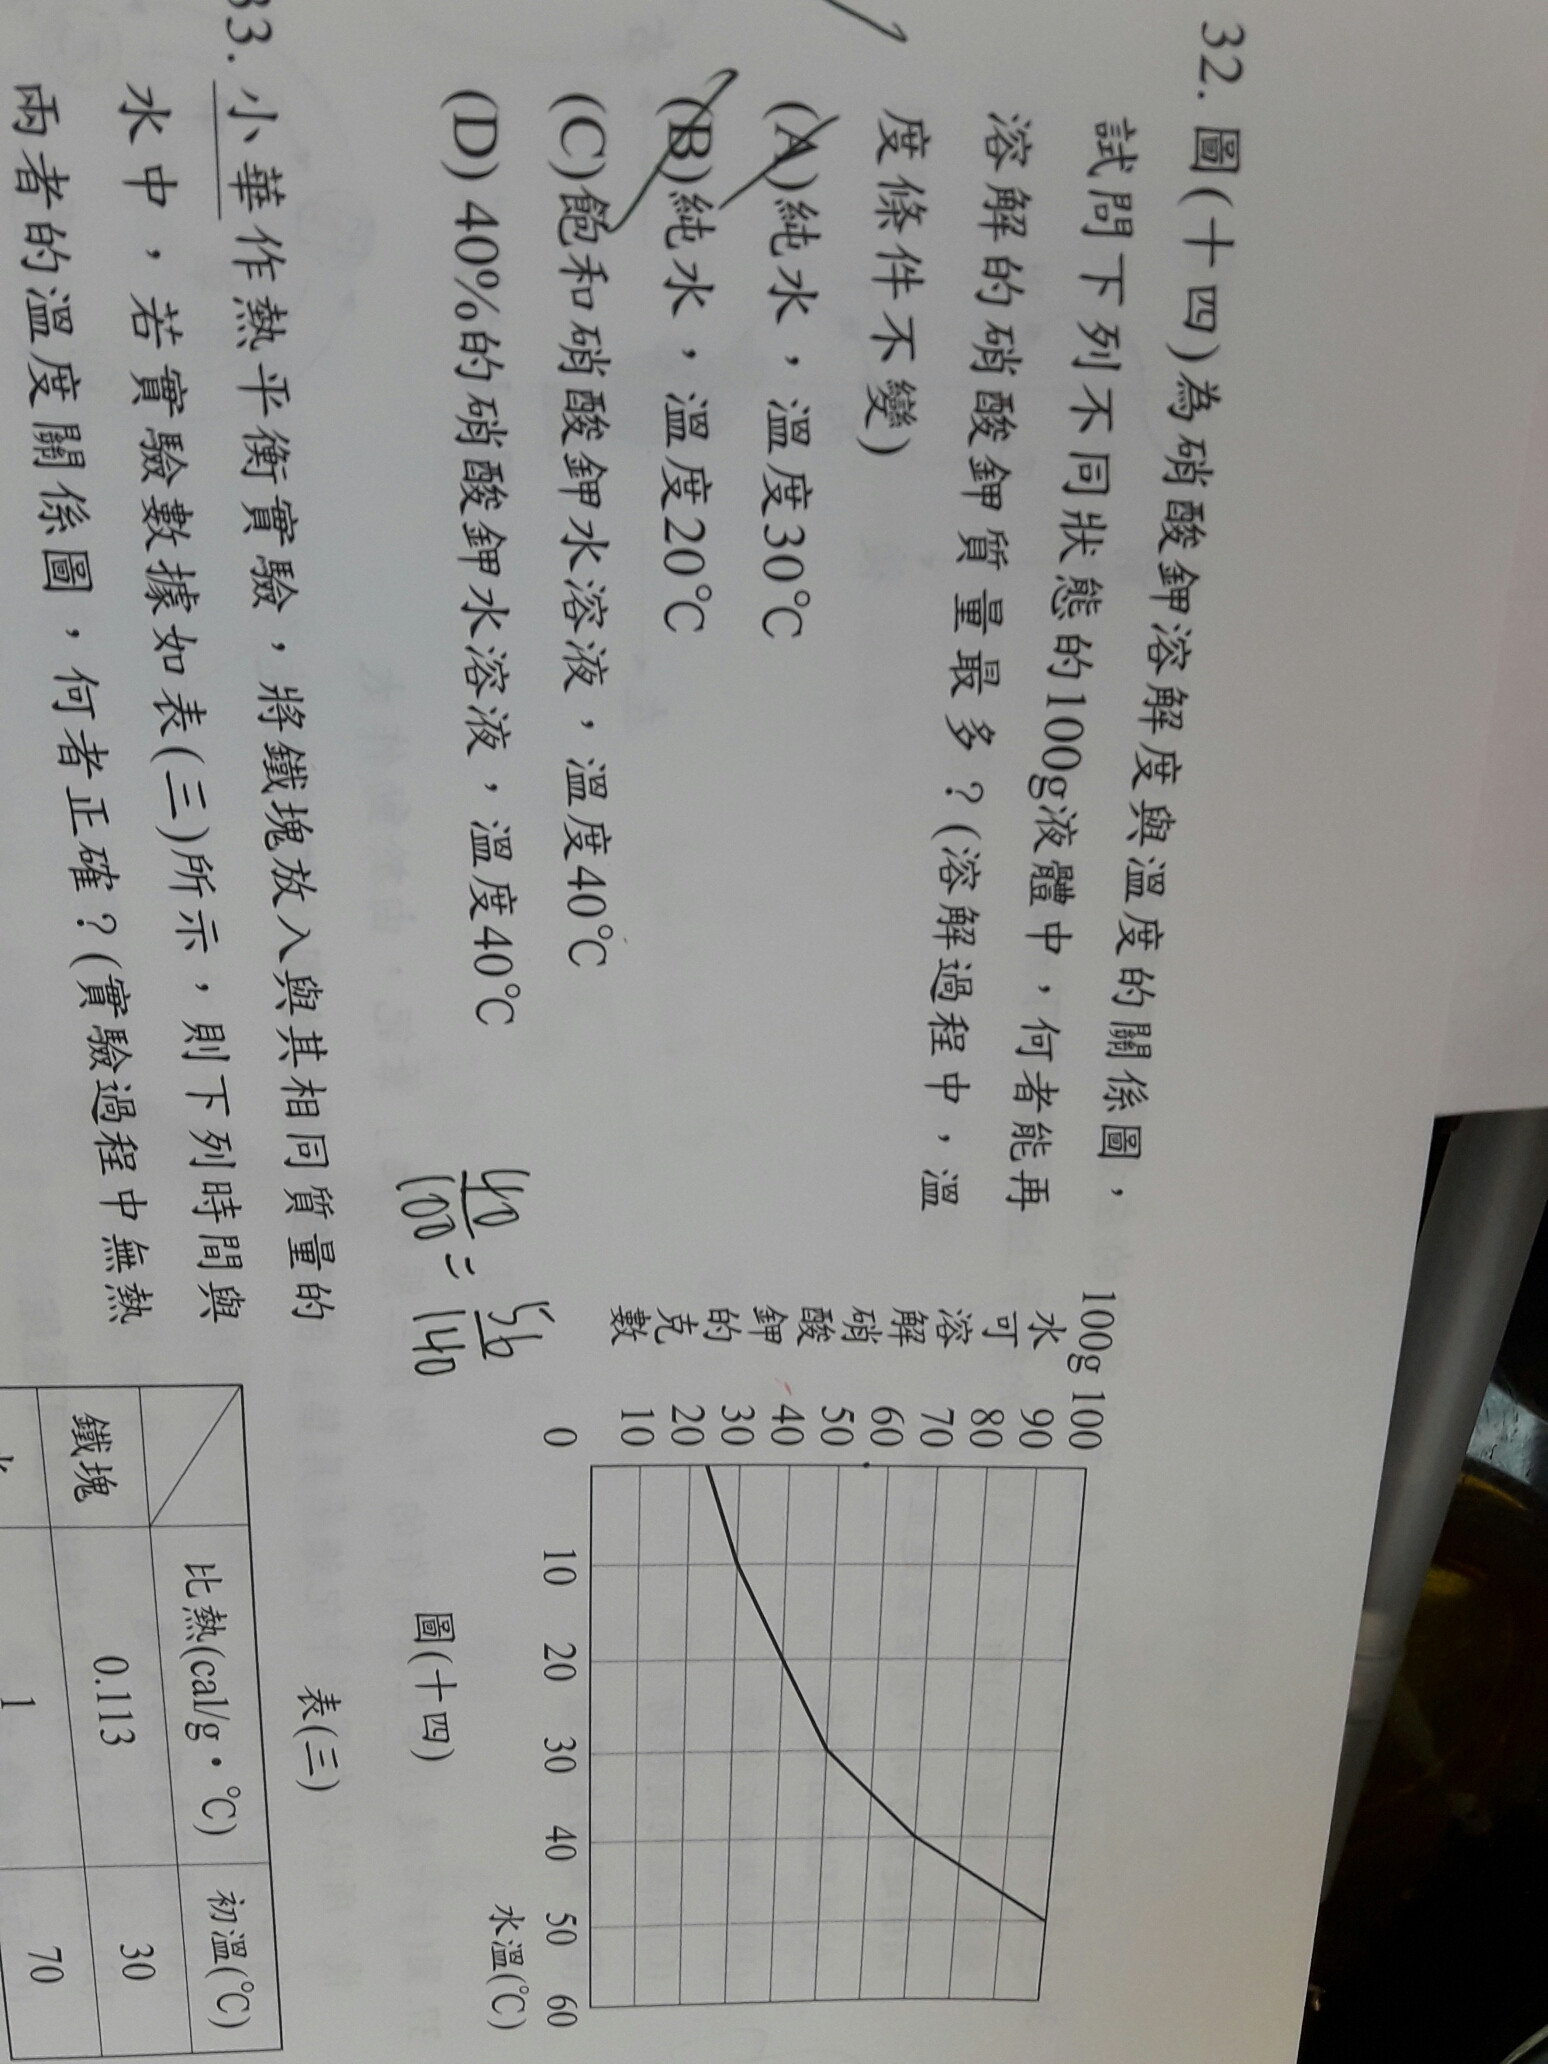 32. 圖(十四)為硝酸鉀溶解度與溫度的關係圖，
試問下列不同狀態的100g液體中，何者能再
溶解的硝酸鉀質量最多？(溶解過程中，溫
度條件不變)
(A)純水，溫度30℃
(B)純水，溫度20℃
(C)飽和硝酸鉀水溶液，溫度40℃
(D) 40%的硝酸鉀水溶液，溫度40℃
40/100 = 56/140
100g
水可溶解硝酸鉀的克數
100
90
80
70
60
50
40
30
20
10
0 10 20 30 40 50 60
水溫(℃)
圖(十四)
33. 小華作熱平衡實驗，將鐵塊放入與其相同質量的
水中，若實驗數據如表(三)所示，則下列時間與
兩者的溫度關係圖，何者正確？(實驗過程中無熱
表(三)
比熱(cal/g·℃) 初溫(℃)
鐵塊 0.113 30
1 70